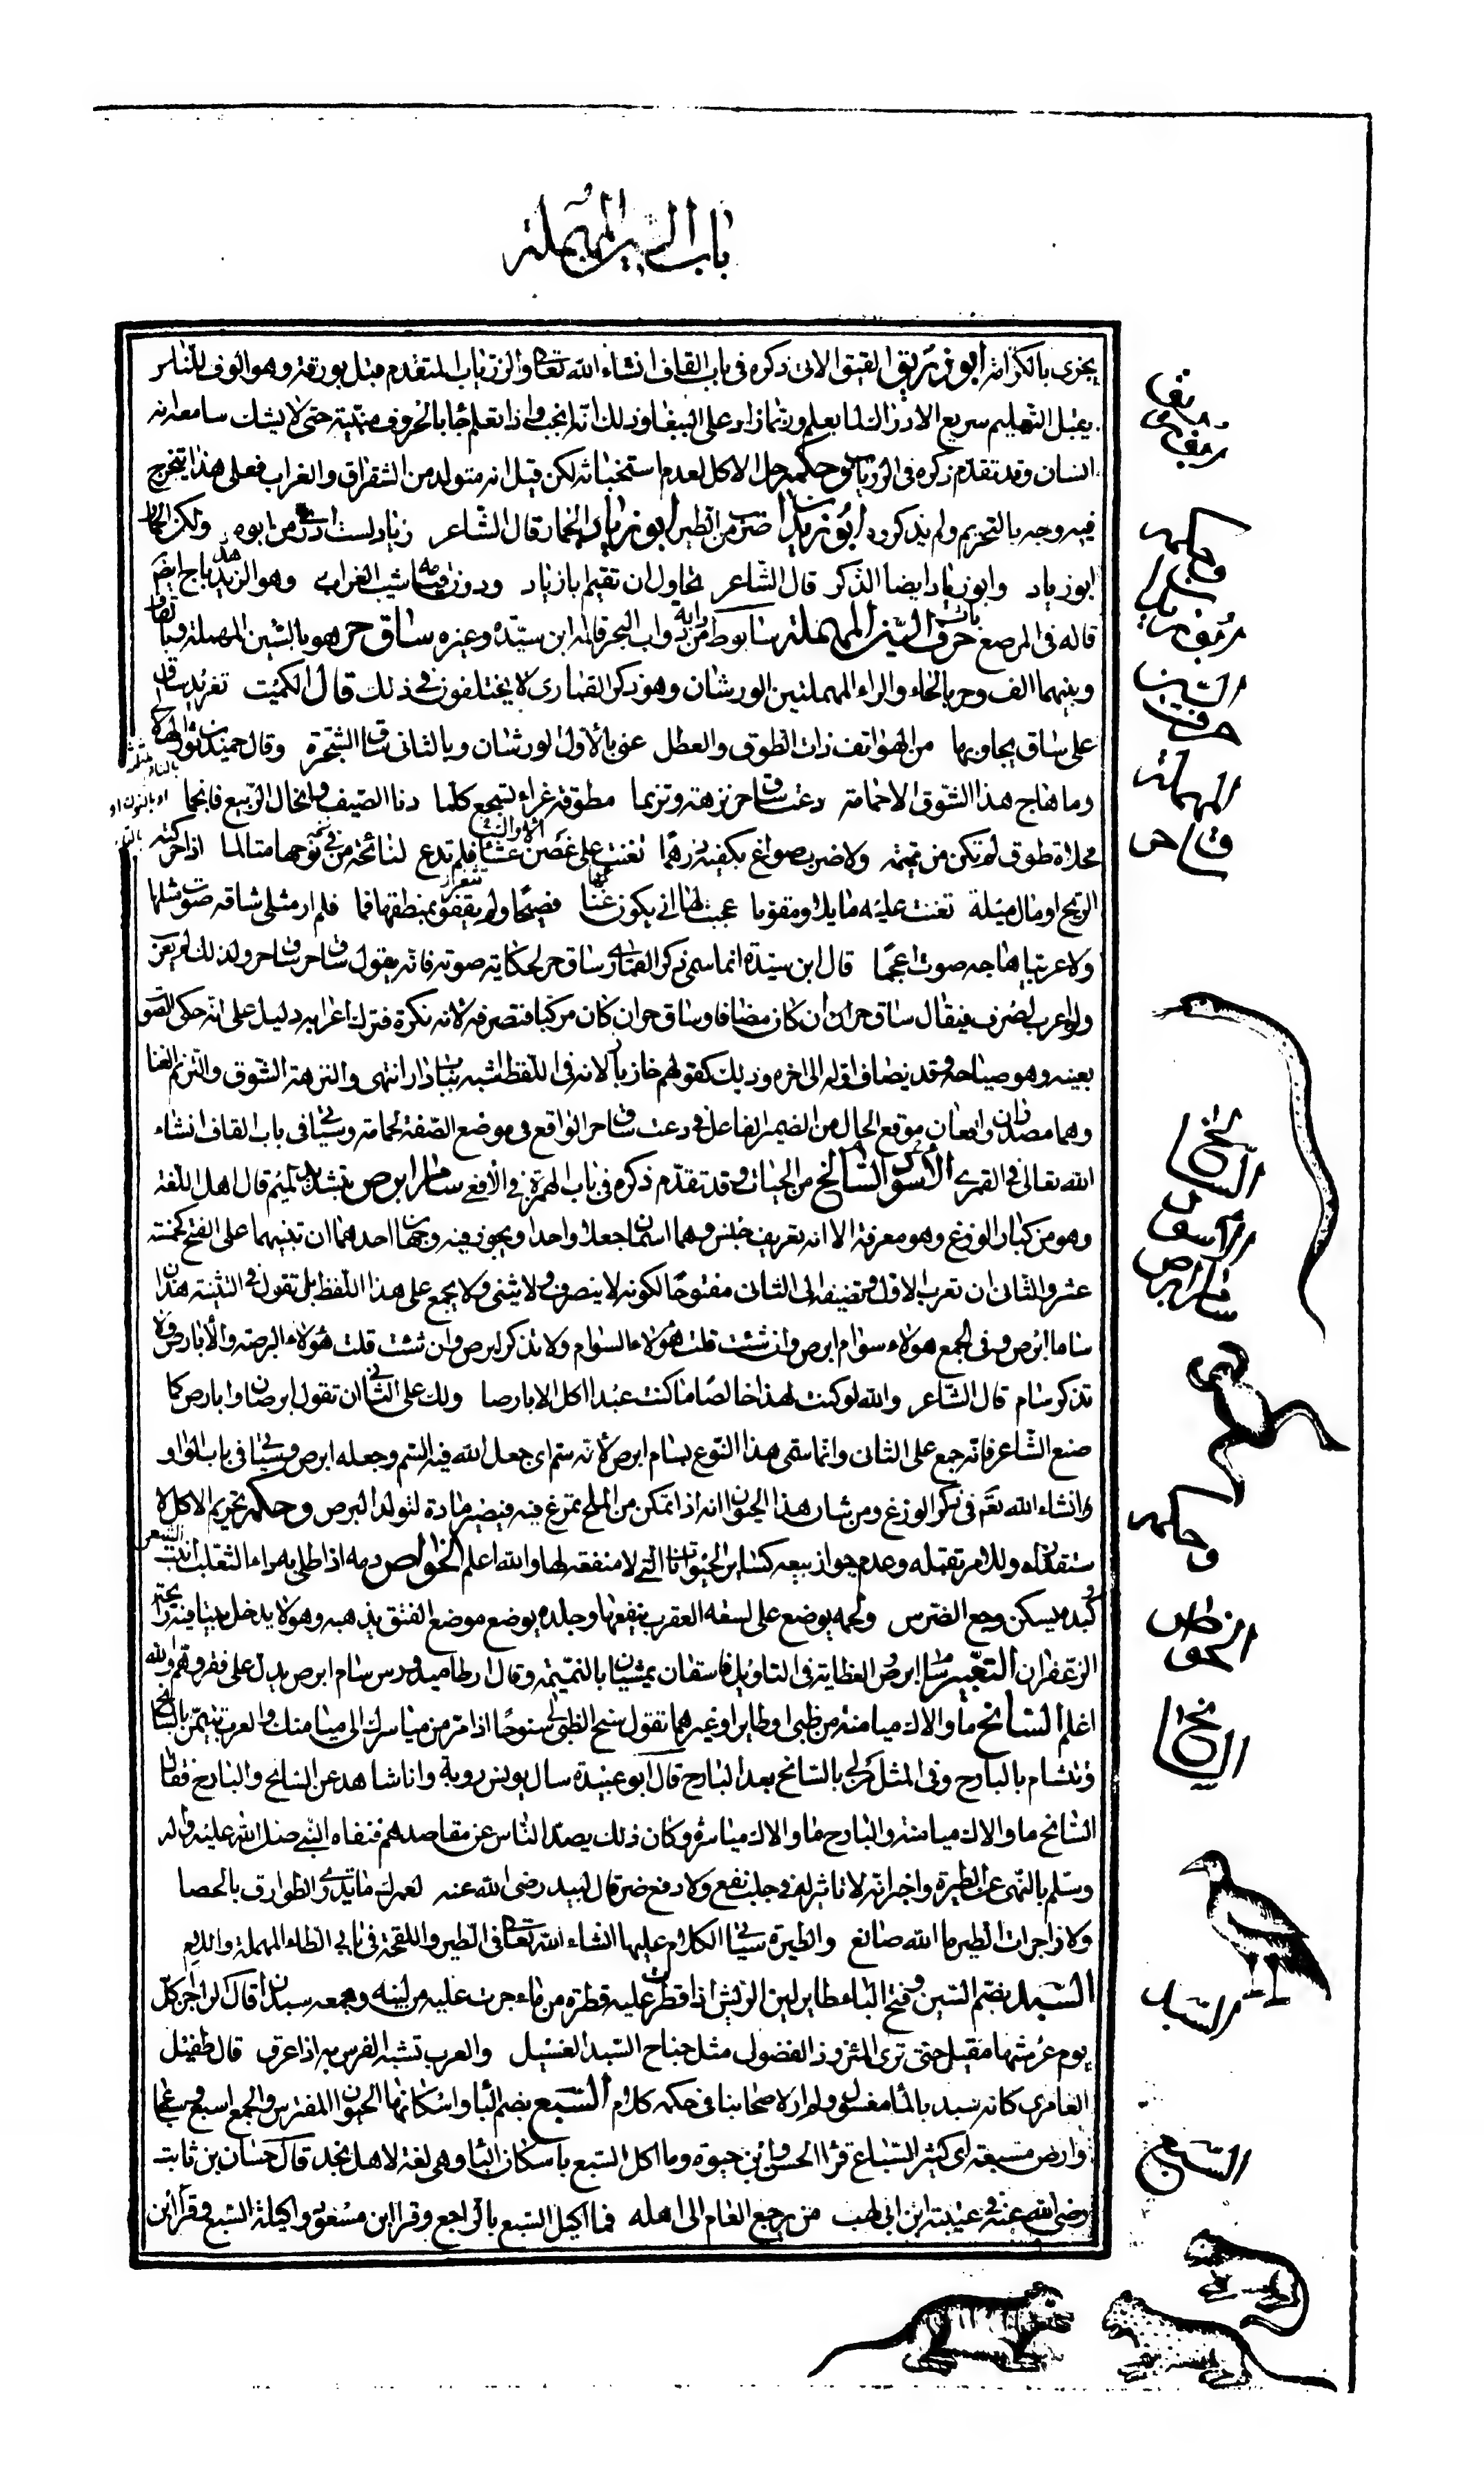 باب السين المهملة
يجزى بالكراهة ابو زريق القيق الاتى ذكره فى باب القاف انشاء الله تعالى والزرياب المتقدم قبل بورقة وهو الوف للناس
يقبل التعليم سريع الادراك لما يعلم وربما زاد على الببغا وذلك انه انجب واذا تعلم جاء بالحروف مبينة حتى لا يشك سامعه انه
انسان وقد تقدم ذكره فى الزرياب وحكمه حل الاكل لعدم استخباثه لكن قيل انه متولد من الشقراق والغراب فعلى هذا يتخرج
فيه وجه بالتحريم ولم يذكروه ابو زيدان ضرب من الطير ابو زياد الحمار قال الشاعر زياد لست ادرى من ابوه ولكن الحمار
ابو زياد وابو زياد ايضا الذكر قال الشاعر تحاول ان تقيم ابا زياد ودون قيامه شيب الغراب وهو الزبد
قاله فى المرصع باب حرف السين المهملة سابوط دابة من دواب البحر قاله ابن سيده وغيره ساق حر هو بالسين المهملة وبالقاف
وبينهما الف وحر بالحاء والراء المهملتين الورشان وهو ذكر القمارى لا يختلفون فى ذلك قال الكميت تغريد ساق
على ساق يجاوبها من الهواتف ذات الطوق والعطل عنى بالاول الورشان وبالثانى ساق الشجرة وقال حميد بن ثور الهلالى
وما هاج هذا الشوق الا حمامة دعت ساق حر نزهة وترنما مطوقة غراء تسجع كلما دنا الصيف وانجال الربيع فانجما
محلاة طوق لم تكن من تميمة ولا ضرب صواغ بكفيه درهما تغنت على غصن عشاء فلم تدع لنائحة من نوحها متالما اذا حركته
الريح او مال ميلة تغنت عليه مايلا ومقوما عجبت لها انى يكون غناؤها فصيحا ولم يفغر بمنطقها فما فلم ار مثلى شاقه صوت مثلها
ولا عربيا هاجه صوت اعجما قال ابن سيدة انما سمى ذكر القمارى ساق حر لحكاية صوته فانه يقول ساق حر ساق حر ولذلك لم يعرب
ولو اعرب لصرف فيقال ساق حر ان كان مضافا وساق حر ان كان مركبا فتصرفه لانه نكرة فترك اعرابه دليل على انه حكى الصوت
بعينه وهو صياحه وقد يضاف اوله الى اخره وذلك كقولهم خاز باز لانه فى اللفظ اشبه بباب دار انتهى والنزهة الشوق والترنم الغنا
وهما مصدران واقعان موقع الحال من الضمير الفاعل فى دعت ساق حر الواقع فى موضع الصفة لحمامة وسياتى فى باب القاف انشاء
الله تعالى فى القمرى الاسود السالخ من الحيات وقد تقدم ذكره فى باب الهمزة فى الافعى سام ابرص بتشديد الميم قال اهل اللغة
وهو من كبار الوزغ وهو معرفة الا انه تعريف جنس وهما اسمان جعلا واحدا ويجوز فيه وجهان احدهما ان تبنيهما على الفتح كخمسة
عشر والثانى ان تعرب الاول وتضيفه الى الثانى مفتوحا لكونه لا ينصرف ولا يثنى ولا يجمع على هذا اللفظ بل تقول فى التثنية هذان
ساما ابرص وفى الجمع هولاء سوام ابرص وان شئت قلت هولاء السوام ولا تذكر ابرص وان شئت قلت هولاء البرصة والابارص ولا
تذكر سام قال الشاعر والله لو كنت لهذا خالصا ما كنت عبدا اكل الابارصا ولك على الثانى ان تقول ابرصان وابارص كما
صنع الشاعر فانه جمع على الثانى وانما سمى هذا النوع بسام ابرص لانه سم اى جعل الله فيه السم وجعله ابرص وسياتى فى باب الواو
انشاء الله تعم فى ذكر الوزغ ومن شان هذا الحيوان انه اذا تمكن من الملح تمرغ فيه فيصير مادة لتولد البرص وحكمه تحريم الاكل لاستقذاره
وللامر بقتله وعدم جواز بيعه كساير الحيوانات التى لا منفعة لها والله اعلم الخواص دمه اذا طلى به داء الثعلب انبت الشعر
وكبده يسكن وجع الضرس ولحمه يوضع على لسعة العقرب ينفعها وجلده يوضع موضع الفتق يذهبه وهو لا يدخل بيتا فيه رائحة
الزعفران التعبير سام ابرص والعظاية فى التاويل فاسقان يمشيان بالنميمة وقال ارطاميدورس سام ابرص يدل على فقر وهم والله
اعلم السانح ما والاك ميامنه من ظبى او طاير او غيرهما تقول سنح الظبى سنوحا اذا مر من مياسرك الى ميامنك والعرب تتيمن بالسانح
وتتشاءم بالبارح وفى المثل من لى بالسانح بعد البارح قال ابو عبيدة سال يونس روبة وانا شاهد عن السانح والبارح فقال
السانح ما والاك ميامنه والبارح ما والاك مياسره وكان ذلك يصد الناس عن مقاصدهم فنفاه النبى صلى الله عليه واله
وسلم بالنهى عن الطيرة واخبر انه لا تاثير له فى جلب نفع ولا دفع ضر قال لبيد رضى الله عنه لعمرك ما تدرى الطوارق بالحصا
ولا زاجرات الطير ما الله صانع والطيرة سياتى الكلام عليها انشاء الله تعالى فى الطير واللقحة فى بابى الطاء المهملة واللام
السبد بضم السين وفتح الباء طاير لين الريش اذا قطر عليه قطرة من ماء جرت عليه من لينه وجمعه سبدان قال الراجز كل
يوم عرشها مقيلى حتى ترى المئزر ذا الفضول مثل جناح السبد الغسيل والعرب تشبه الفرس به اذا عرق قال طفيل
العامرى كانه سبد بالماء مغسول ولم ار لاصحابنا فى حكمه كلام السبع بضم الباء واسكانها الحيوان المفترس والجمع اسبع وسباع
وارض مسبعة اى كثير السباع قرا الحسن وابن حيوة وما اكل السبع باسكان الباء وهى لغة لاهل نجد قال حسان بن ثابت
رضى الله عنه فى عتيبة ابن ابى لهب من يرجع العام الى اهله فما اكيل السبع بالراجع وقرا ابن مسعود واكيلة السبع وقرا ابن
وحكمه
السين
حرف
المهملة
السالخ
الاسود
سام ابرص
وحكمه
الخواص
السانح
السبد
السبع